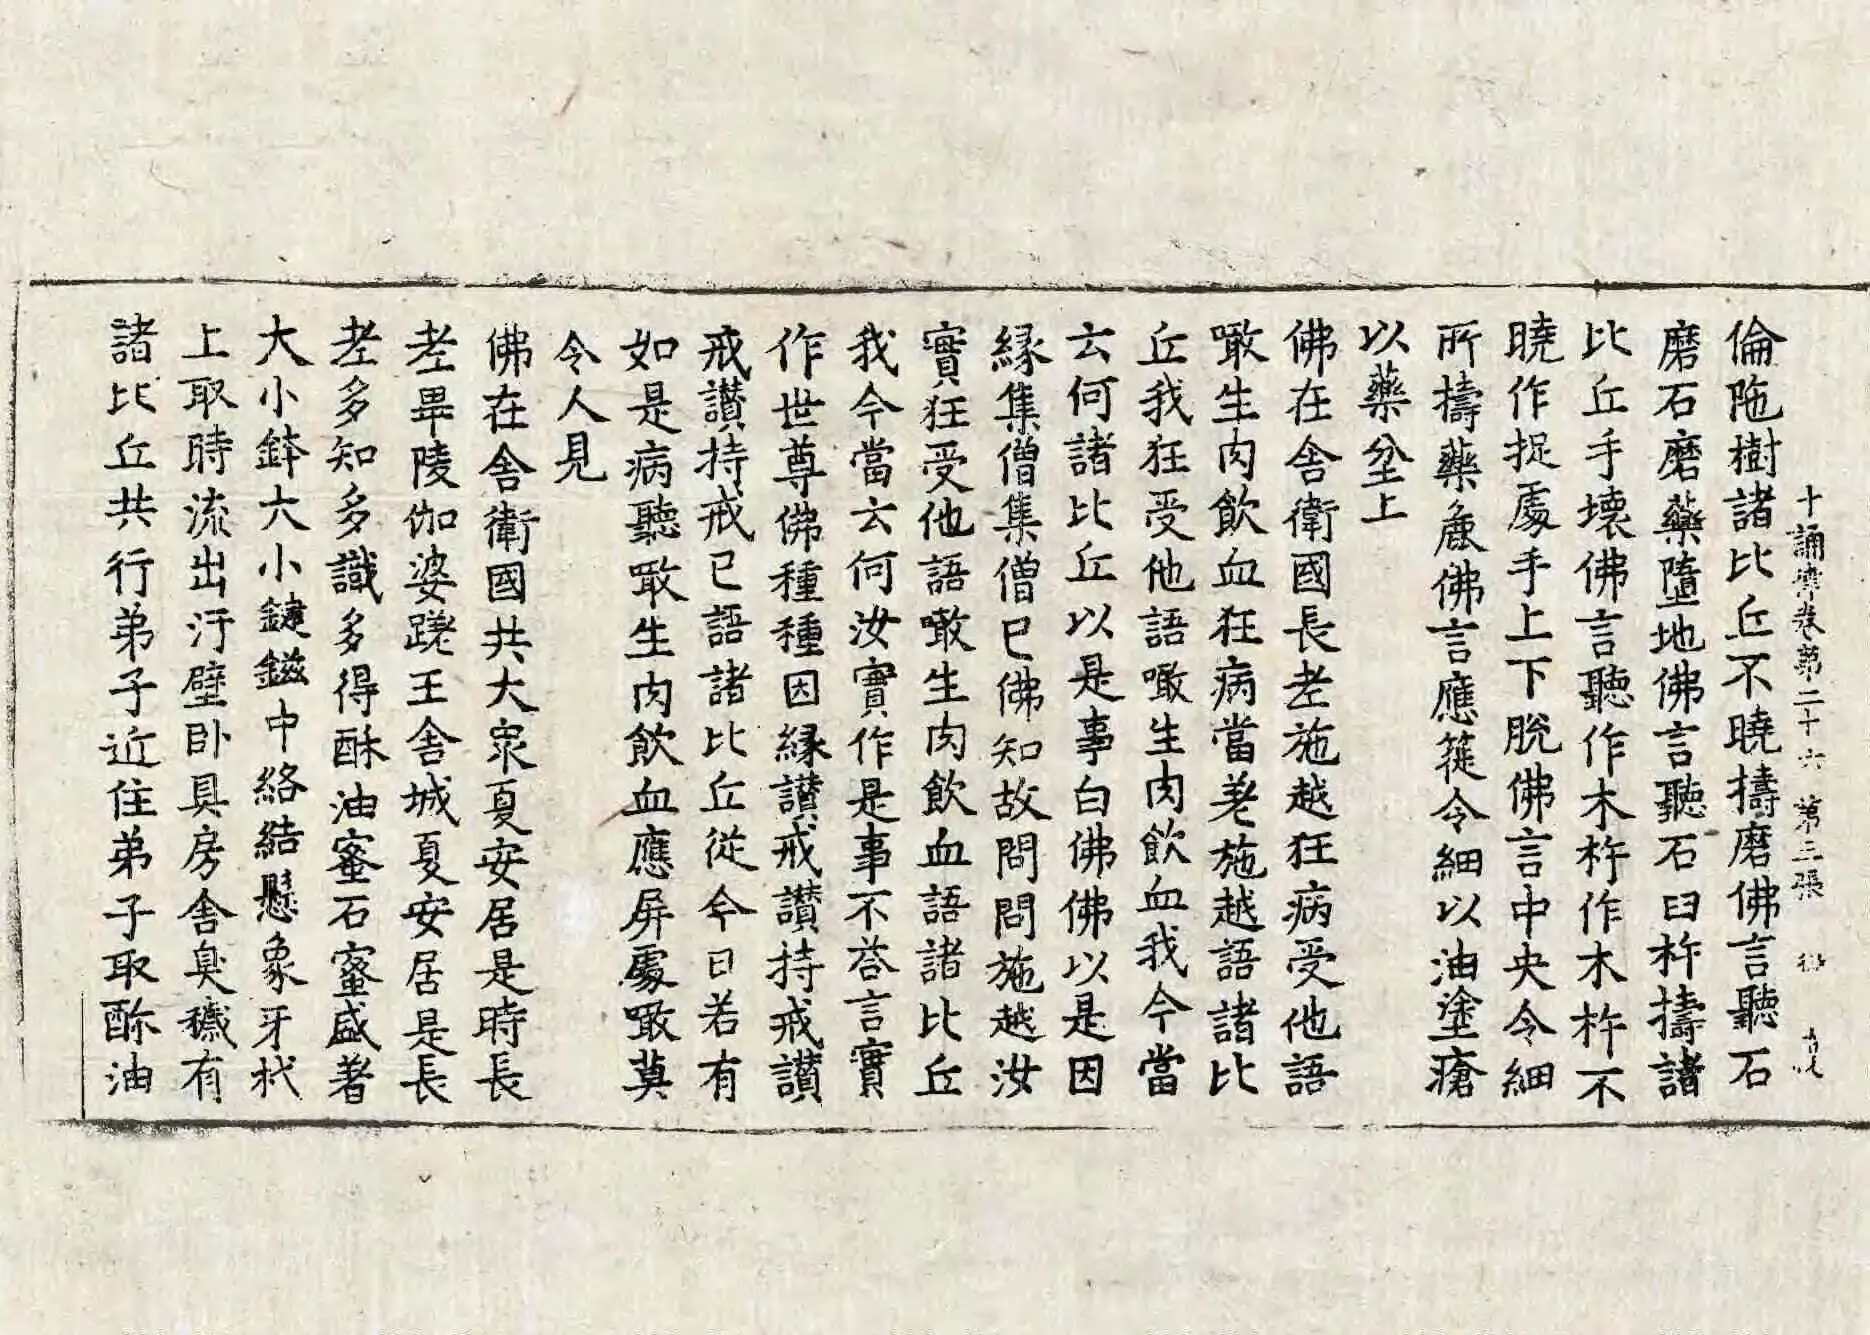 十誦律卷第二十六 第三張
倫陁樹諸比丘不曉擣磨佛言聽石
磨石磨藥墮地佛言聽石臼杵擣諸
比丘手壞佛言聽作木杵作木杵不
曉作捉處手上下脫佛言中央令細
所擣藥麁佛言應簁令細以油塗瘡
以藥坌上
佛在舍衛國長老施越狂病受他語
噉生肉飲血狂病當差施越語諸比
丘我狂受他語噉生肉飲血我今當
云何諸比丘以是事白佛佛以是因
緣集僧集僧已佛知故問問施越汝
實狂受他語噉生肉飲血語諸比丘
我今當云何汝實作是事不荅言實
作世尊佛種種因緣讃戒讃持戒讃
戒讃持戒已語諸比丘從今日若有
如是病聽噉生肉飲血應屏處噉莫
令人見
佛在舍衛國共大衆夏安居是時長
老畢陵伽婆蹉王舍城夏安居是長
老多知多識多得酥油蜜石蜜盛著
大小鉢大小鍵鎡中絡結懸象牙杙
上取時流出汙壁卧具房舍臭穢有
諸比丘共行弟子近住弟子取酥油